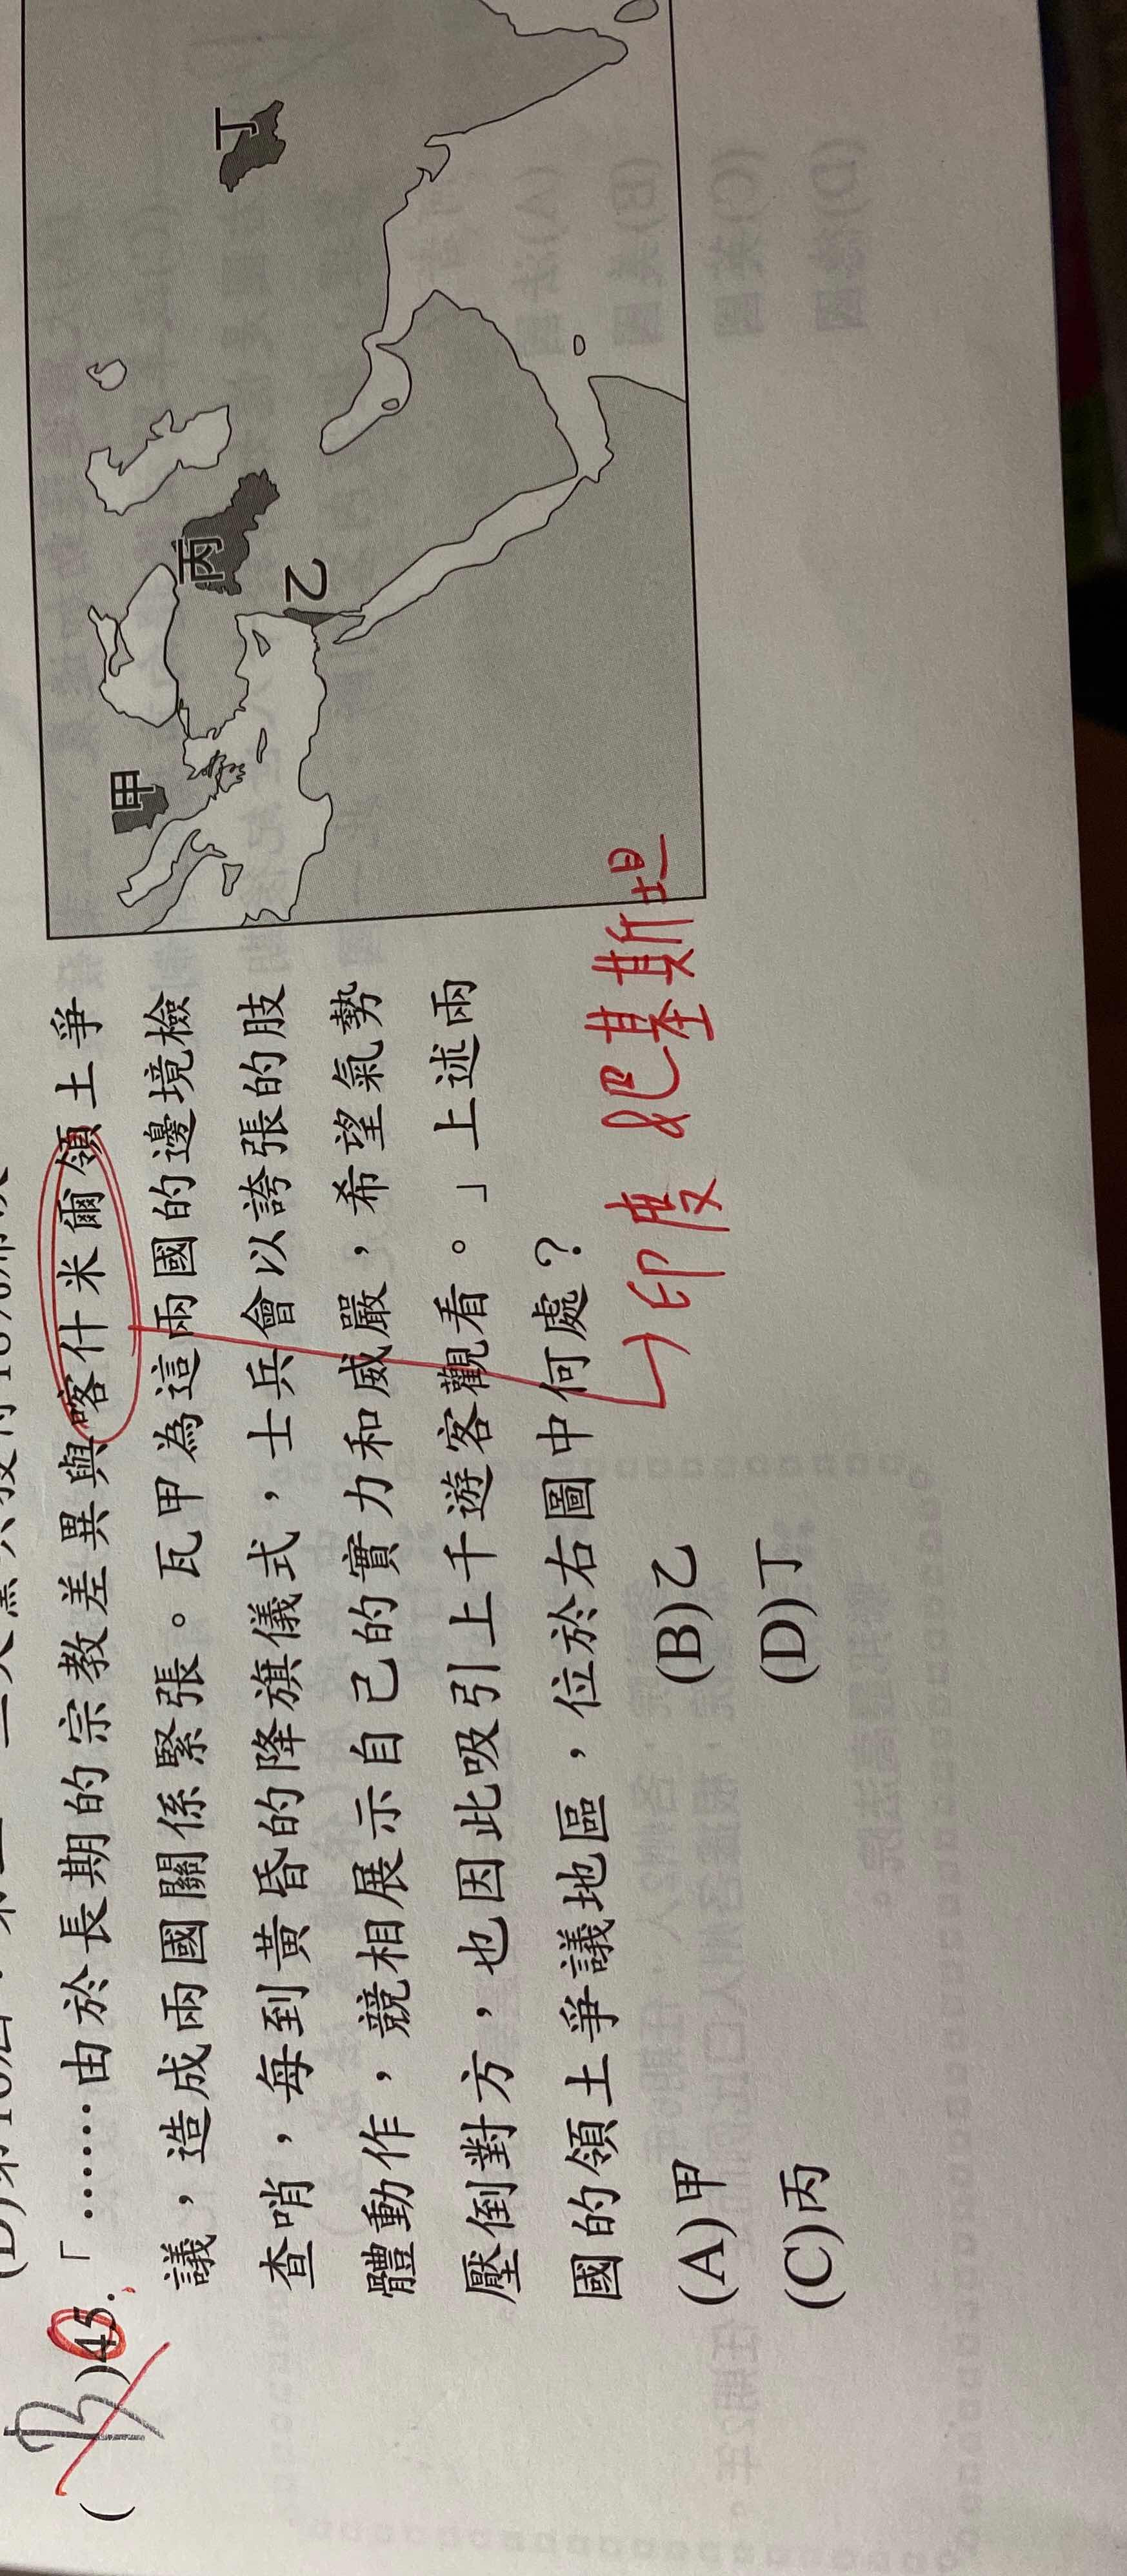 (B)45.「……由於長期的宗教差異與喀什米爾領土爭
議，造成兩國關係緊張。瓦甲為這兩國的邊境檢
查哨，每到黃昏的降旗儀式，士兵會以誇張的肢
體動作，競相展示自己的實力和威嚴，希望氣勢
壓倒對方，也因此吸引上千遊客觀看。」上述兩
國的領土爭議地區，位於右圖中何處？
(A)甲 (B)乙
(C)丙 (D)丁
印度 巴基斯坦
甲
乙
丙
丁